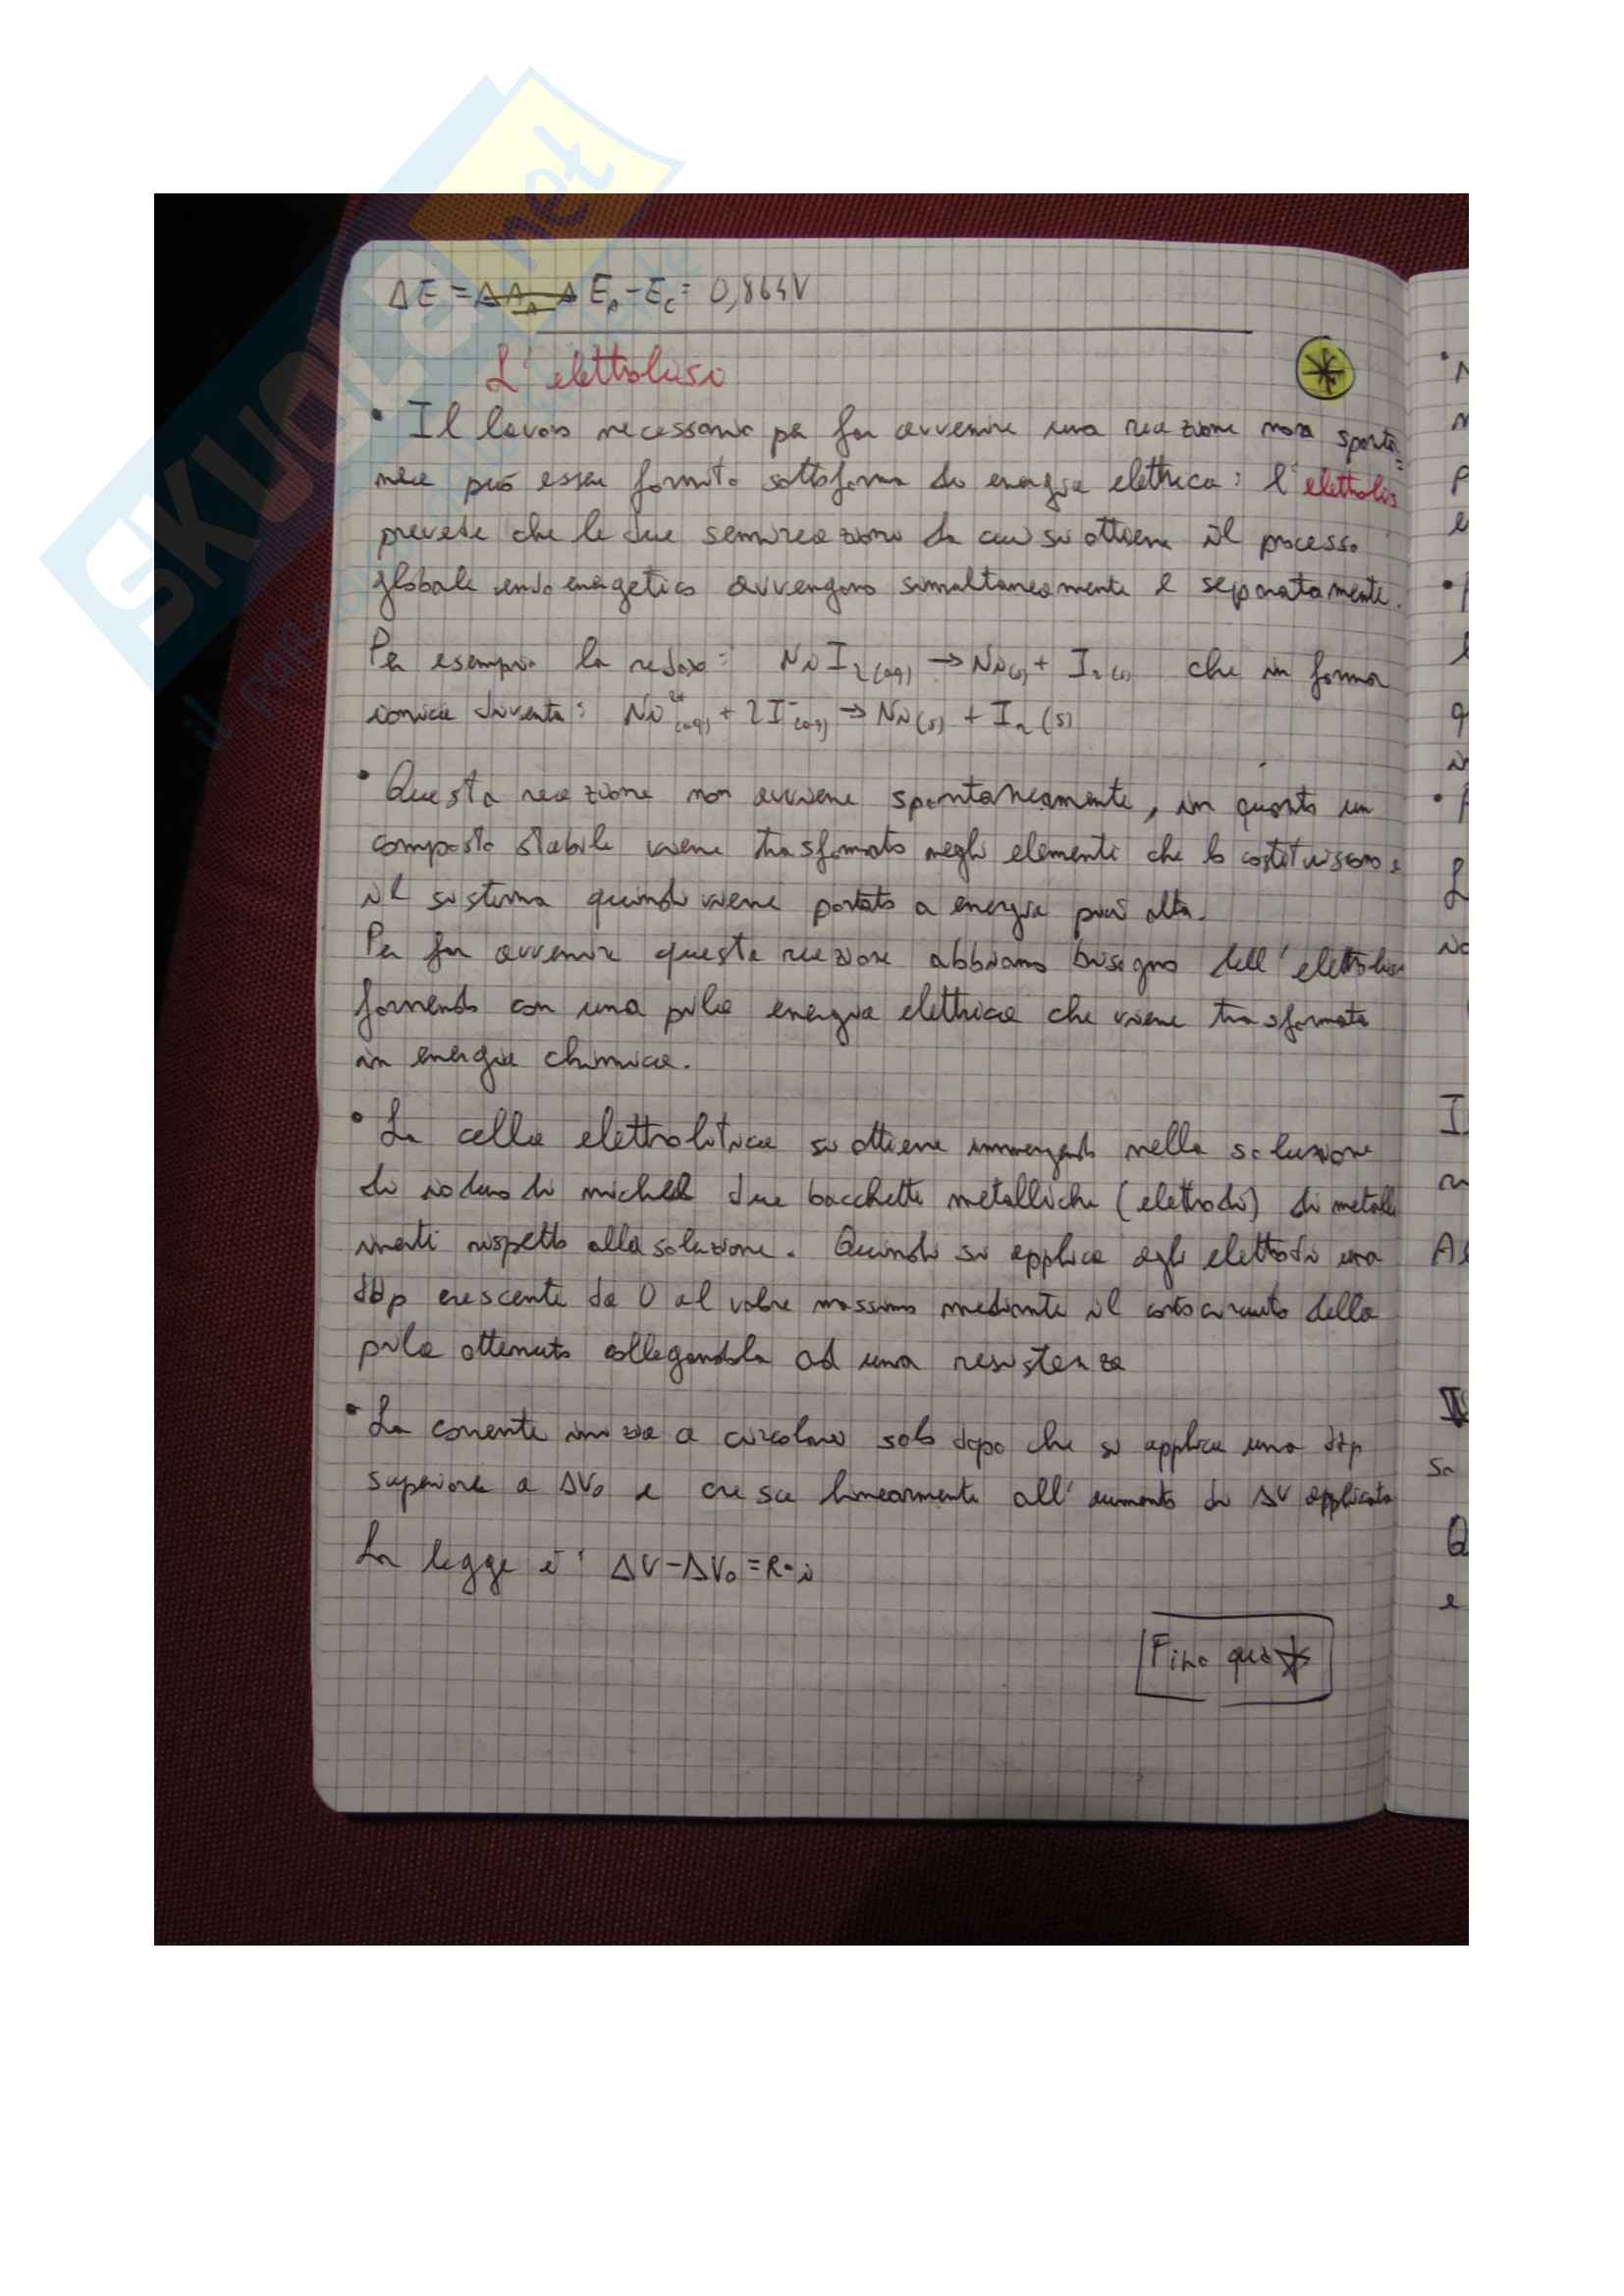 ΔE = E_A - E_C = 0,864V
L'elettrolisi
• Il lavoro necessario per far avvenire una reazione non sponta=
nea può essere fornito sottoforma di energia elettrica: l'elettrolisi
prevede che le due semireazioni da cui si ottiene il processo
globale endoenergetico avvengano simultaneamente e separatamente.
Per esempio la redox: NiI₂(aq) → Ni(s) + I₂(s) che in forma
ionica diventa: Ni²⁺(aq) + 2I⁻(aq) → Ni(s) + I₂(s)
• Questa reazione non avviene spontaneamente, in quanto un
composto stabile viene trasformato negli elementi che lo costituiscono e
il sistema quindi viene portato a energia più alta.
Per far avvenire questa reazione abbiamo bisogno dell'elettrolisi
fornendo con una pila energia elettrica che viene trasformata
in energia chimica.
• La cella elettrolitica si ottiene immergendo nella soluzione
di ioduro di nichel due bacchette metalliche (elettrodi) di metalli
inerti rispetto alla soluzione. Quindi si applica agli elettrodi una
ddp crescente da 0 al valore massimo mediante il cortocircuito della
pila ottenuto collegandola ad una resistenza
• La corrente inizia a circolare solo dopo che si applica una ddp
superiore a ΔV₀ e cresce linearmente all'aumento di ΔV applicata
La legge è: ΔV-ΔV₀ = R·i
Fino qua *
SKUOLA.net